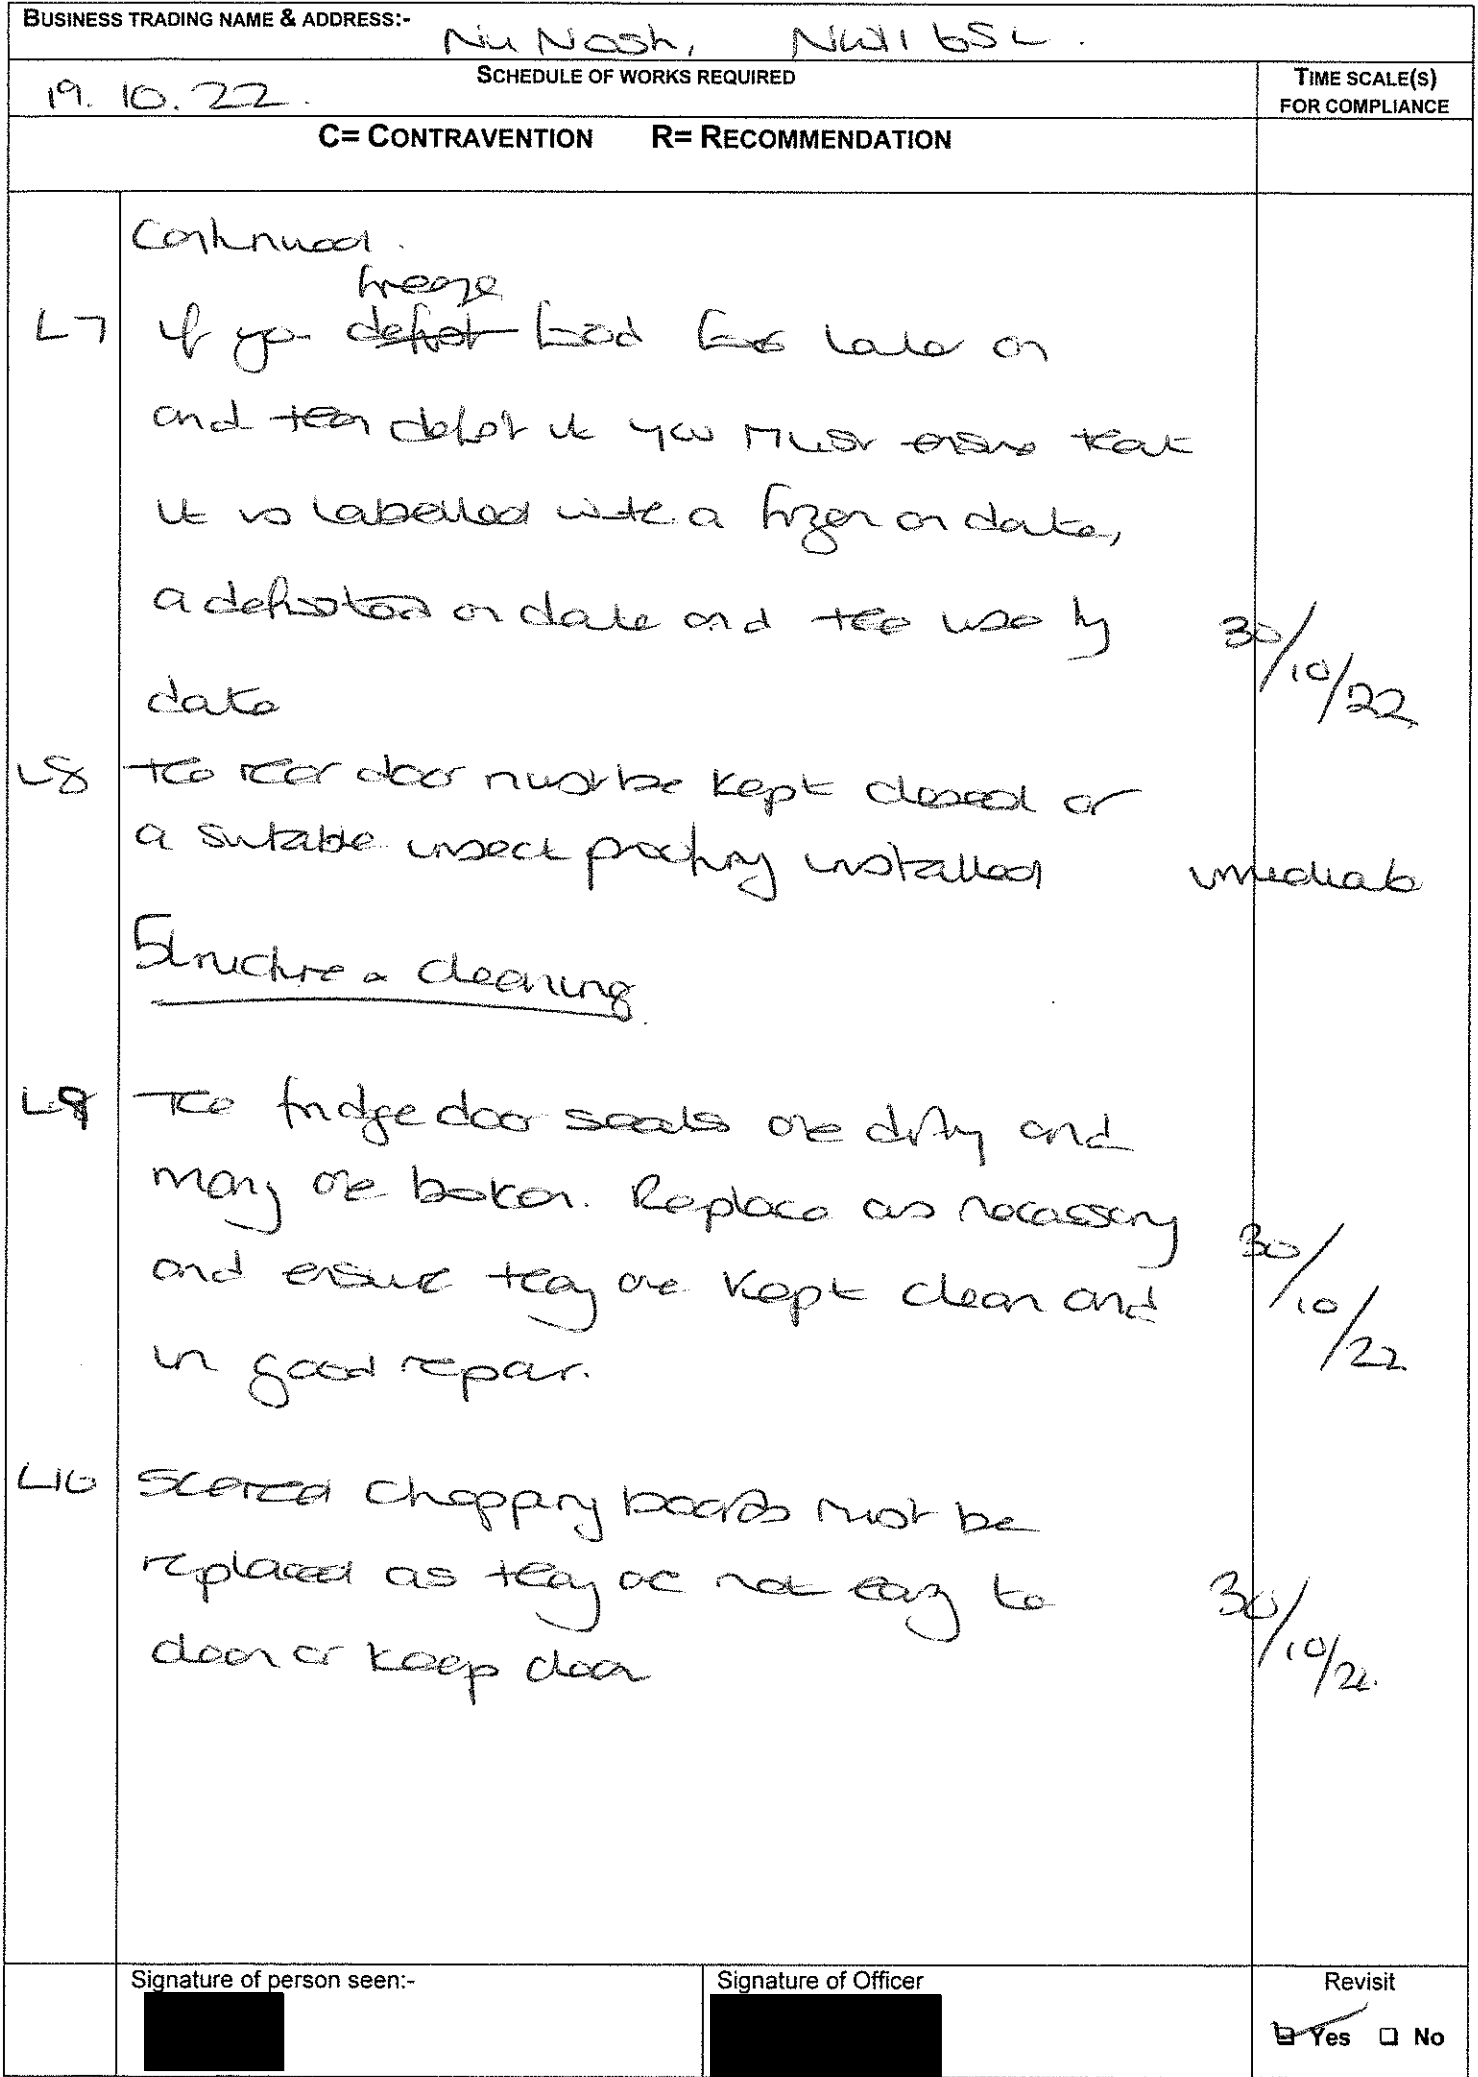 BUSINESS TRADING NAME & ADDRESS:- Nu Nosh, NW11 6SL.
19.10.22. SCHEDULE OF WORKS REQUIRED TIME SCALE(S)
FOR COMPLIANCE
C= CONTRAVENTION R= RECOMMENDATION
Continued.
freeze
L7 if you defrost food for later on
and then defrost it you must ensure that
it is labelled with a frozen on date,
a defrosted on date and the use by 30/10/22
date
L8 the rear door must be kept closed or
a suitable insect proofing installed immediate
Structure & cleaning
L9 The fridge door seals are dirty and
many are broken. Replace as necessary
and ensure they are kept clean and 30/10/22
in good repair.
L10 Scored chopping boards must be
replaced as they are not easy to 30/10/22.
clean or keep clean
Signature of person seen:- Signature of Officer Revisit
Yes No